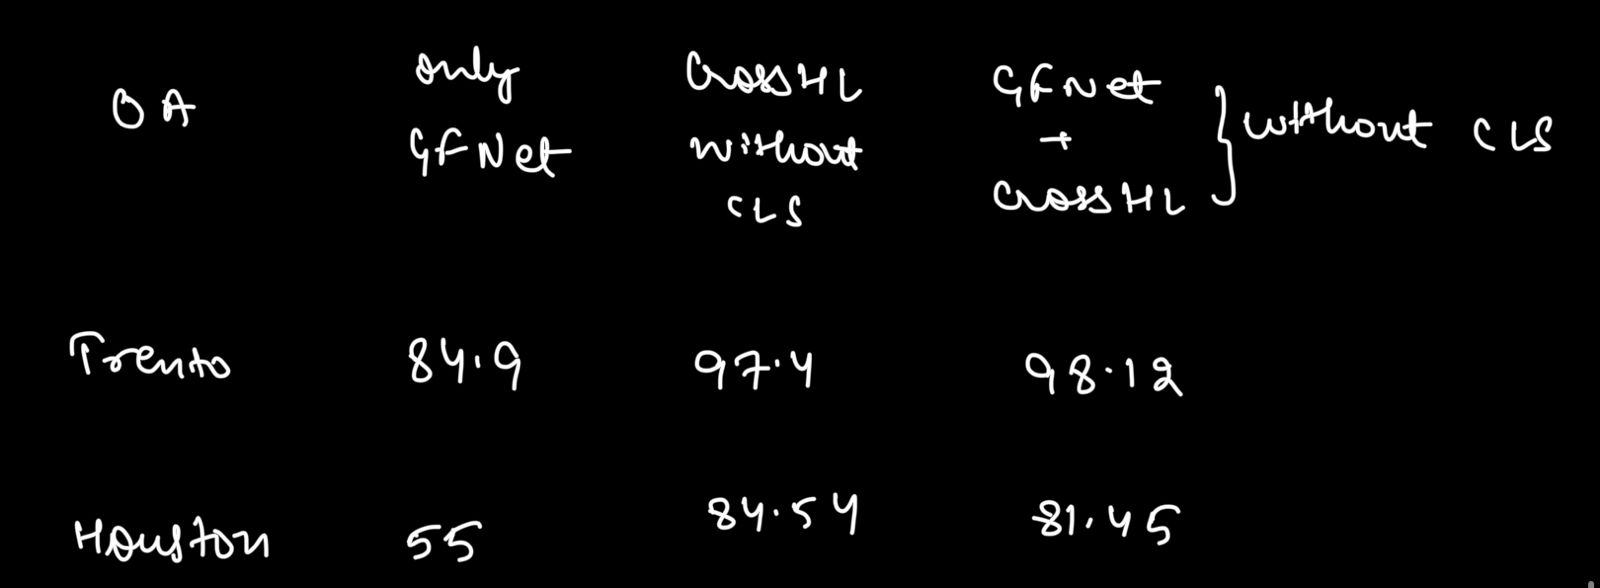 OA only GFNet CrossHL without CLS GFNet + CrossHL } without CLS
Trento 84.9 97.4 98.12
Houston 55 84.54 81.45